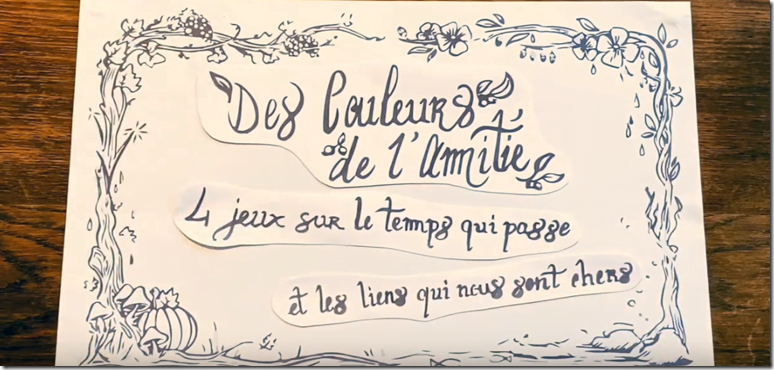 Des Couleurs
de l'Amitié
4 jeux sur le temps qui passe
et les liens qui nous sont chers